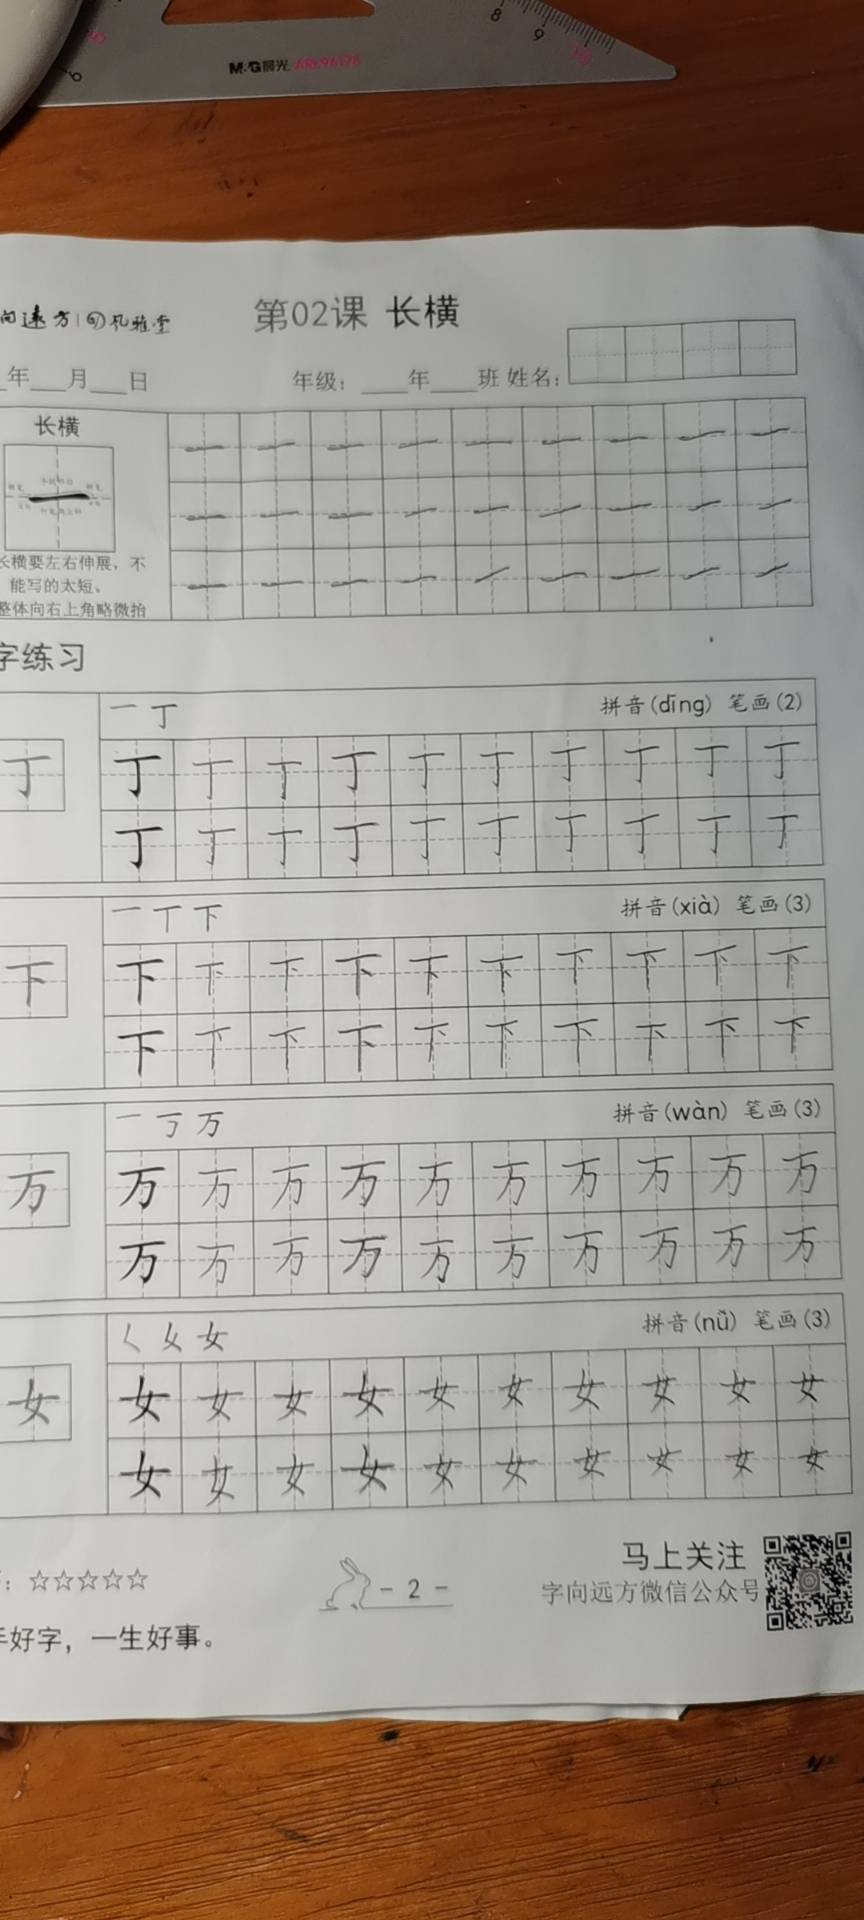 8 9 10
6
M&G晨光 ARL96178
向远方 孔雅堂
第02课 长横
年___月___日
年级：____年____班 姓名：
长横
长横要左右伸展，不
能写的太短。
整体向右上角略微抬
一 一 一 一 一 一 一 一 一
一 一 一 一 一 一 一 一 一
一 一 一 一 一 一 一 一 一
字练习
一 丁 拼音(dīng) 笔画(2)
丁
丁 丁 丁 丁 丁 丁 丁 丁 丁 丁
丁 丁 丁 丁 丁 丁 丁 丁 丁 丁
一 丅 下 拼音(xià) 笔画(3)
下
下 下 下 下 下 下 下 下 下 下
下 下 下 下 下 下 下 下 下 下
一 丂 万 拼音(wàn) 笔画(3)
万
万 万 万 万 万 万 万 万 万 万
万 万 万 万 万 万 万 万 万 万
𡿨 女 拼音(nǚ) 笔画(3)
女
女 女 女 女 女 女 女 女 女 女
女 女 女 女 女 女 女 女 女 女
：☆☆☆☆☆
- 2 -
马上关注
字向远方微信公众号
手好字，一生好事。